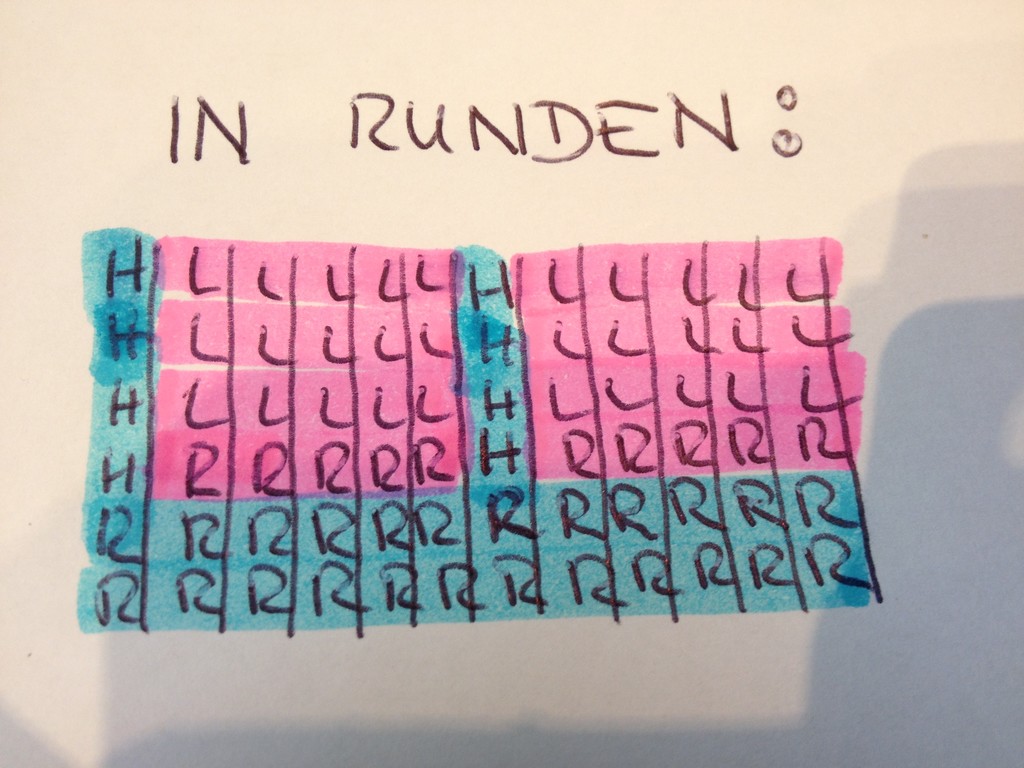 IN RUNDEN:
H L L L L L H L L L L L
H L L L L L H L L L L L
H L L L L L H L L L L L
H R R R R R H R R R R R
R R R R R R R R R R R R
R R R R R R R R R R R R